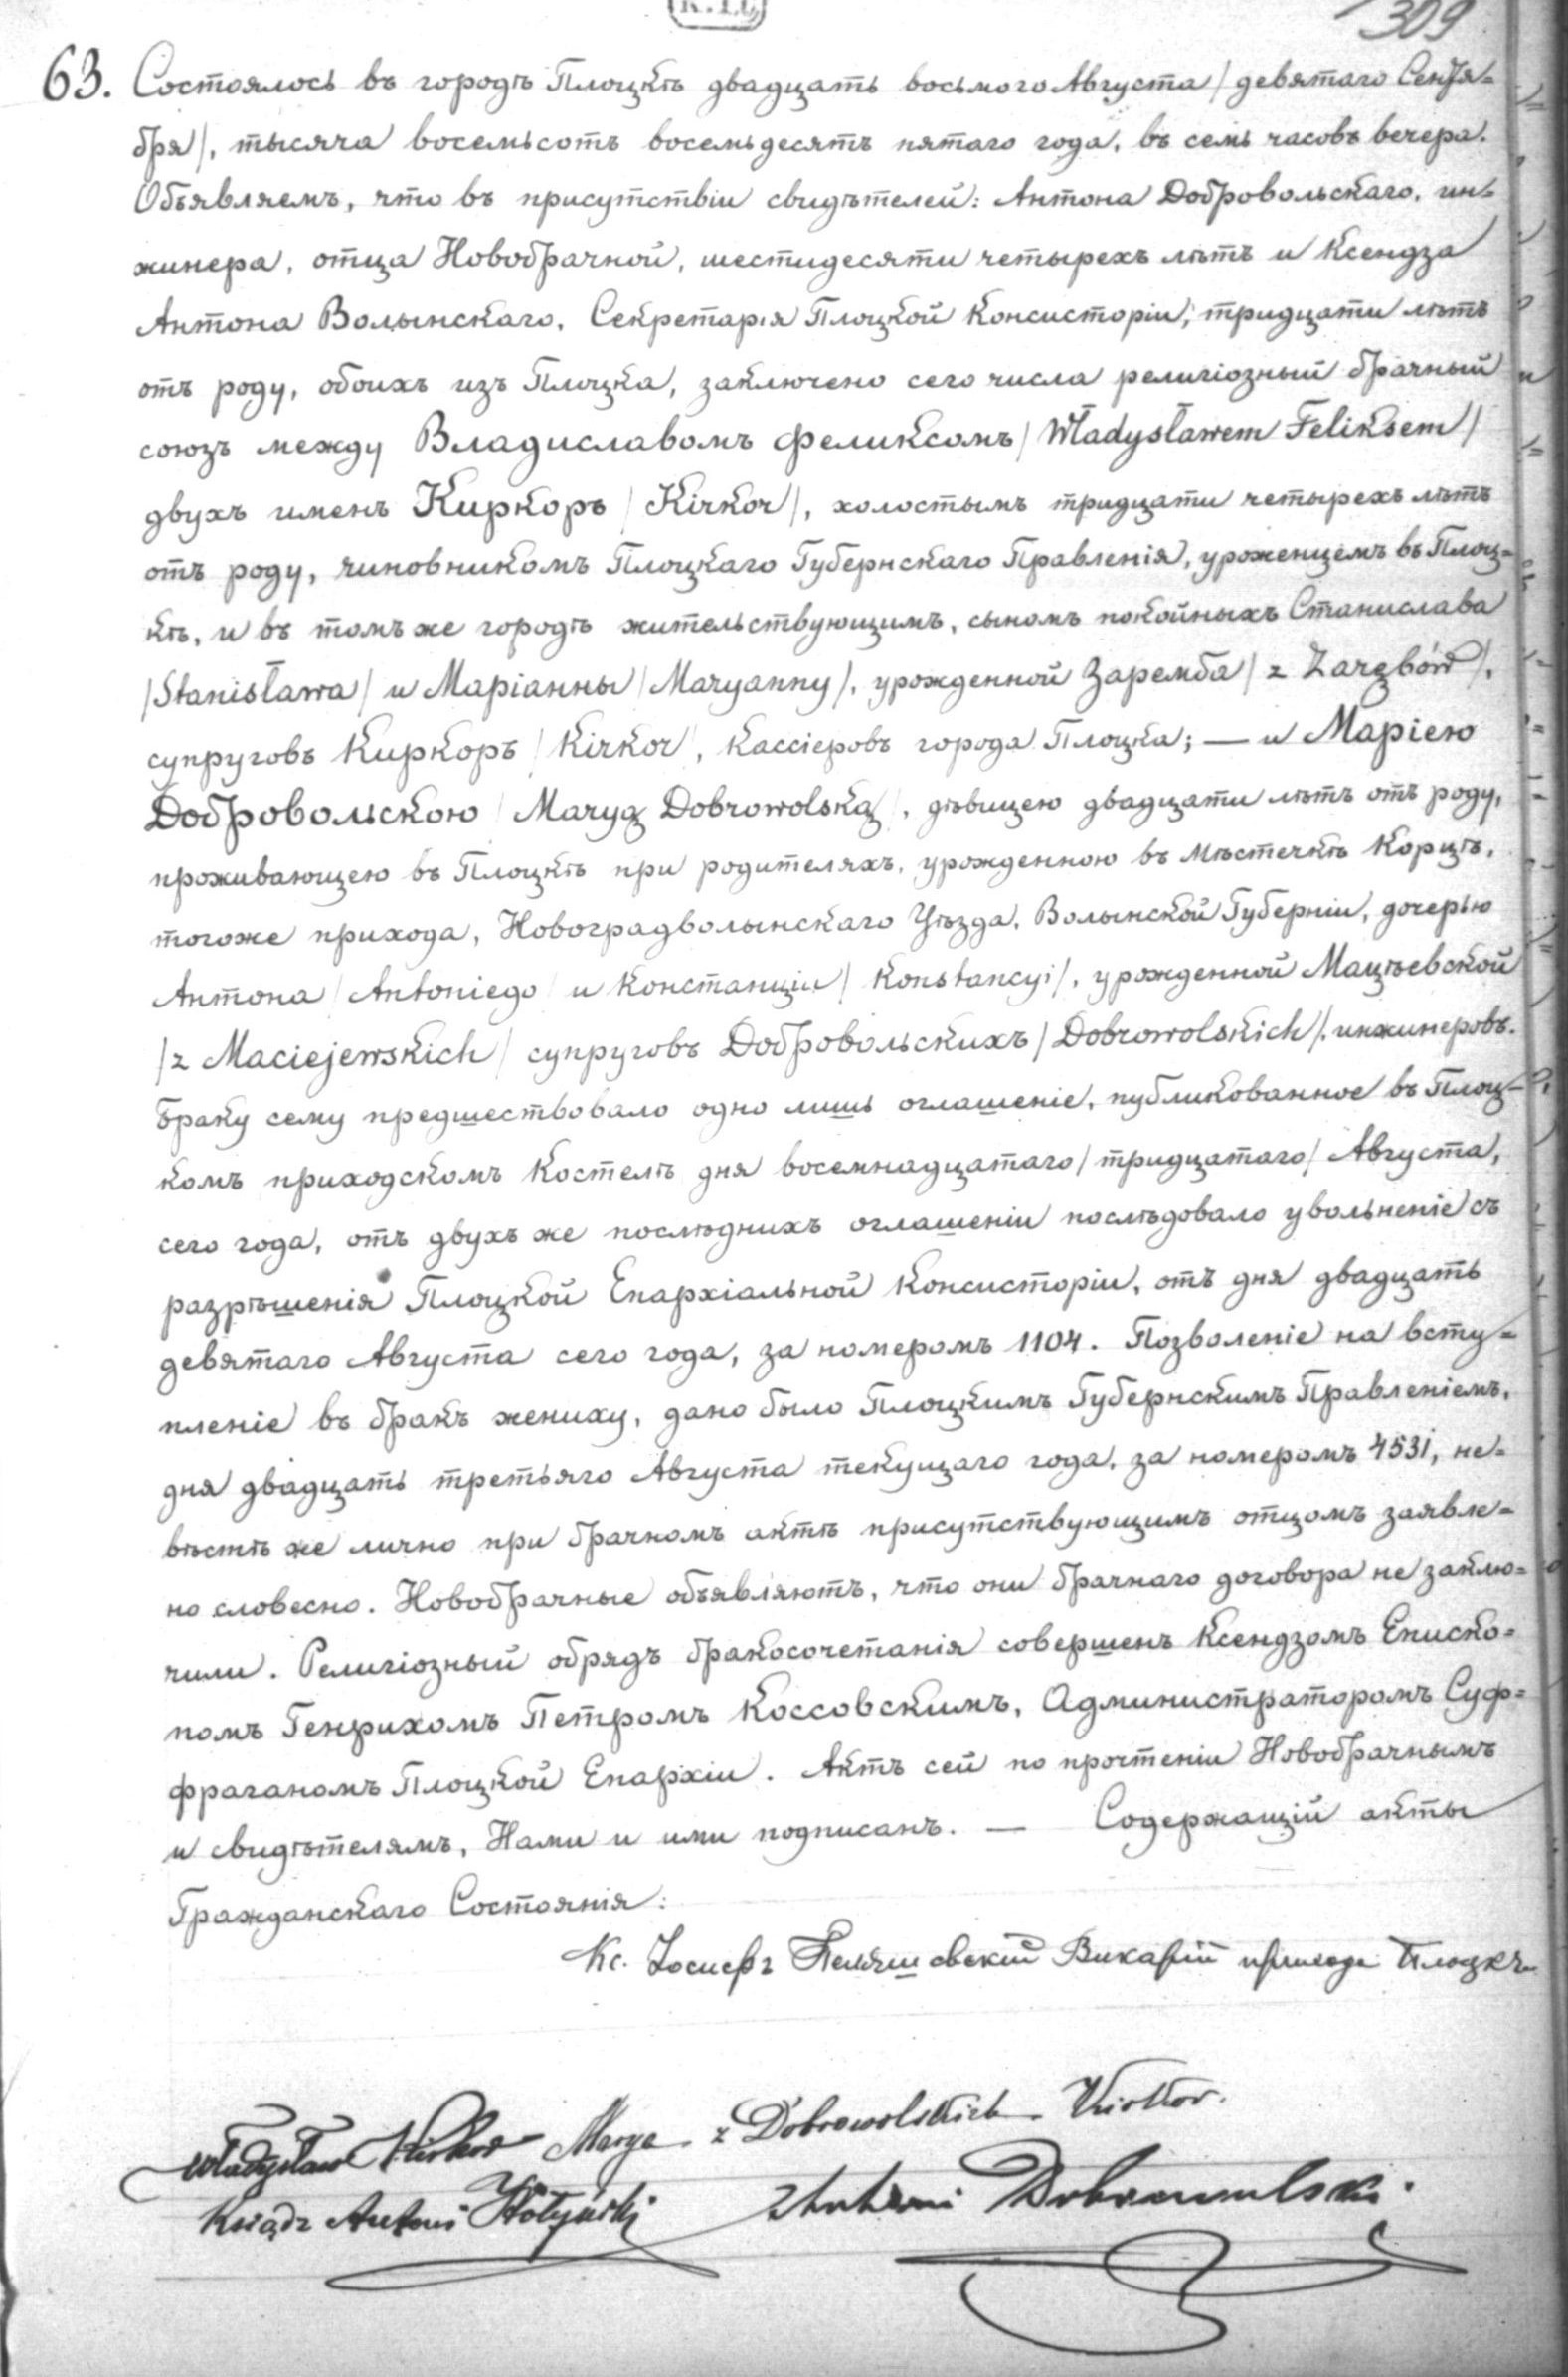 309
63. Состоялось въ городѣ Плоцкѣ двадцать восьмого Августа /девятаго Сентя=
бря/, тысяча восемьсотъ восемьдесятъ пятаго года, въ семь часовъ вечера.
Объявляемъ, что въ присутствіи свидѣтелей: Антона Добровольскаго, ин=
жинера, отца Новобрачной, шестидесяти четырехъ лѣтъ и Ксендза
Антона Волынскаго, Секретарія Плоцкой Консисторіи, тридцати лѣтъ
отъ роду, обоихъ изъ Плоцка, заключено сего числа религіозный брачный
союзъ между Владиславомъ Феликсомъ /Władysławem Feliksem/
двухъ именъ Киркоръ /Kirkor/, холостымъ тридцати четырехъ лѣтъ
отъ роду, чиновникомъ Плоцкаго Губернскаго Правленія, уроженцемъ въ Плоц=
кѣ, и въ томъ же городѣ жительствующимъ, сыномъ покойныхъ Станислава
/Stanisława/ и Маріанны /Maryanny/, урожденной Заремба /z Zarębów/,
супруговъ Киркоръ /Kirkor/, Кассіеровъ города Плоцка; — и Маріею
Добровольскою /Maryą Dobrowolską/, дѣвицею двадцати лѣтъ отъ роду,
проживающею въ Плоцкѣ при родителяхъ, урожденною въ мѣстечкѣ Корцѣ,
тогоже прихода, Новоградволынскаго Уѣзда, Волынской Губерніи, дочерью
Антона /Antoniego/ и Констанціи /Konstancyi/, урожденной Мацѣевской
/z Maciejewskich/ супруговъ Добровольскихъ /Dobrowolskich/, инжинеровъ.
Браку сему предшествовало одно лишь оглашеніе, публикованное въ Плоц-
комъ приходскомъ Костелѣ дня восемнадцатаго /тридцатаго/ Августа,
сего года, отъ двухъ же послѣднихъ оглашеніи послѣдовало увольненіе съ
разрѣшенія Плоцкой Епархіальной Консисторіи, отъ дня двадцать
девятаго Августа сего года, за номеромъ 1104. Позволеніе на всту=
пленіе въ бракъ жениху, дано было Плоцкимъ Губернскимъ Правленіемъ,
дня двадцать третьяго Августа текущаго года, за номеромъ 4531, не=
вѣстѣ же лично при брачномъ актѣ присутствующимъ отцомъ заявле=
но словесно. Новобрачные объявляютъ, что они брачнаго договора не заклю=
чили. Религіозный обрядъ бракосочетанія совершенъ Ксендзомъ Еписко=
помъ Генрихомъ Петромъ Коссовскимъ, Администраторомъ Суф=
фраганомъ Плоцкой Епархіи. Актъ сей по прочтеніи Новобрачнымъ
и свидѣтелямъ, Нами и ими подписанъ. — Содержащій акты
Гражданскаго Состоянія:
Кс. Іосифъ Викарій прихода Плоцкъ
Władysław Kirkor Marya z Dobrowolskich Kirkor.
Ksiądz Antoni Wołyński Antoni Dobrowolski.